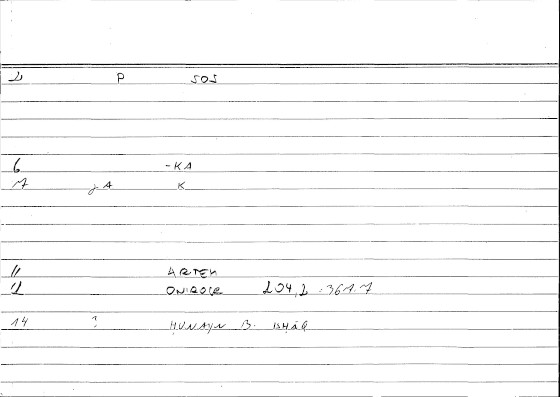 2 P SOS
6 -KA
7 jA K
11 ARTEM
12 ONIROCR 204,2 -361.7
14 ? ḤUNAYN B. ISḤĀQ